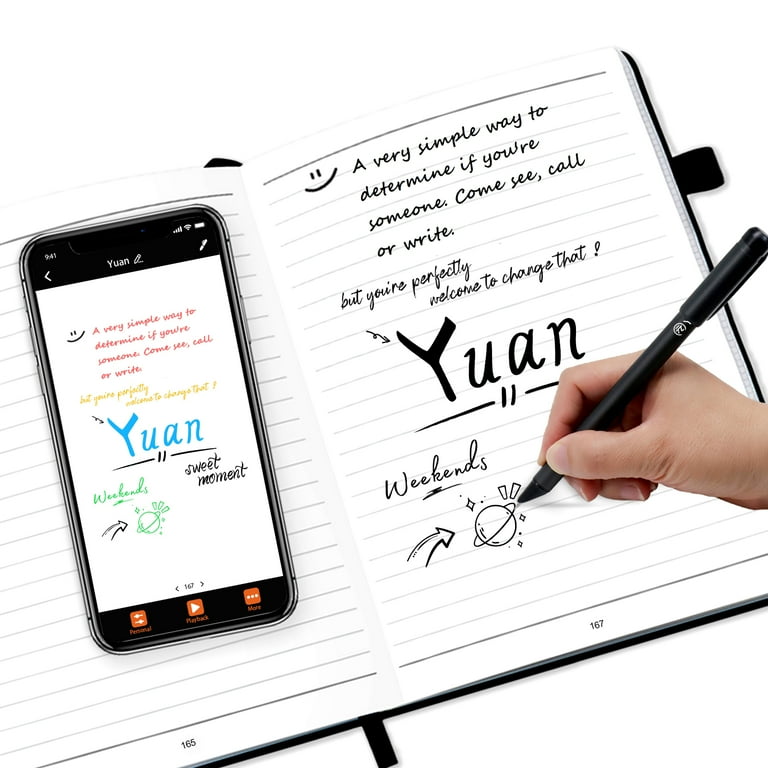 9:41
Yuan
A very simple way to
determine if you're
someone. Come see, call
or write.
but you're perfectly
welcome to change that ?
Yuan
sweet
moment
Weekends
167
Personal
Playback
More
165
A very simple way to
determine if you're
someone. Come see, call
or write.
but you're perfectly
welcome to change that ?
Yuan
Weekends
167